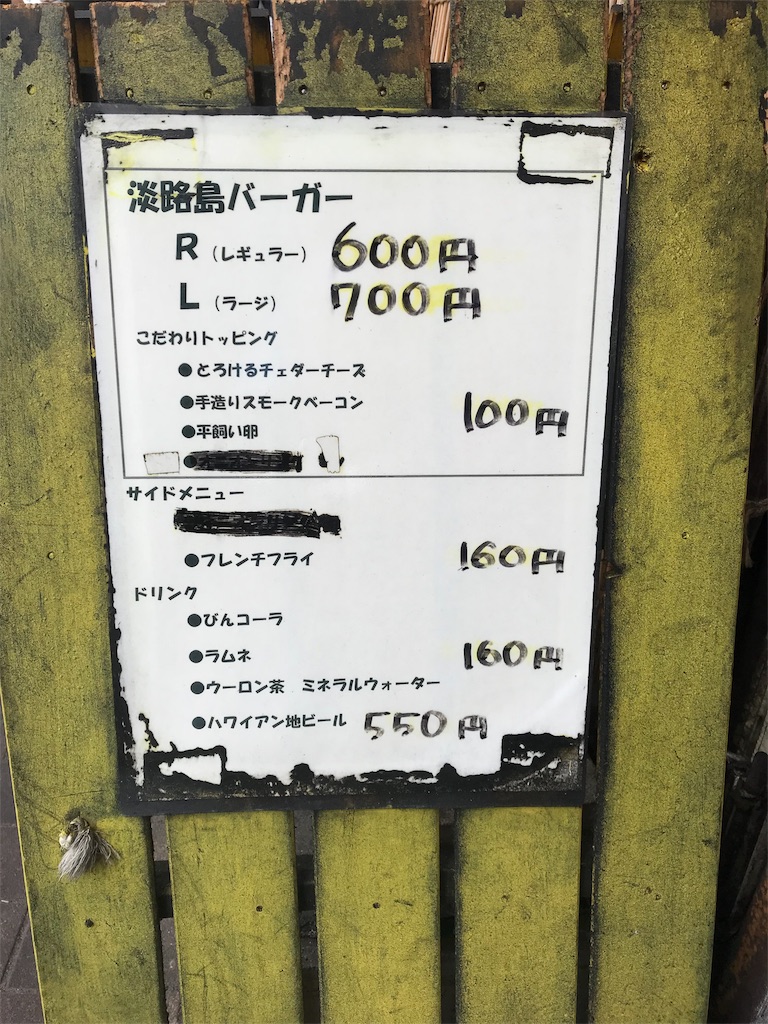 淡路島バーガー
R（レギュラー） 600円
L（ラージ） 700円
こだわりトッピング
●とろけるチェダーチーズ
●手造りスモークベーコン
100円
●平飼い卵
サイドメニュー
●フレンチフライ 160円
ドリンク
●びんコーラ
●ラムネ 160円
●ウーロン茶　ミネラルウォーター
●ハワイアン地ビール 550円